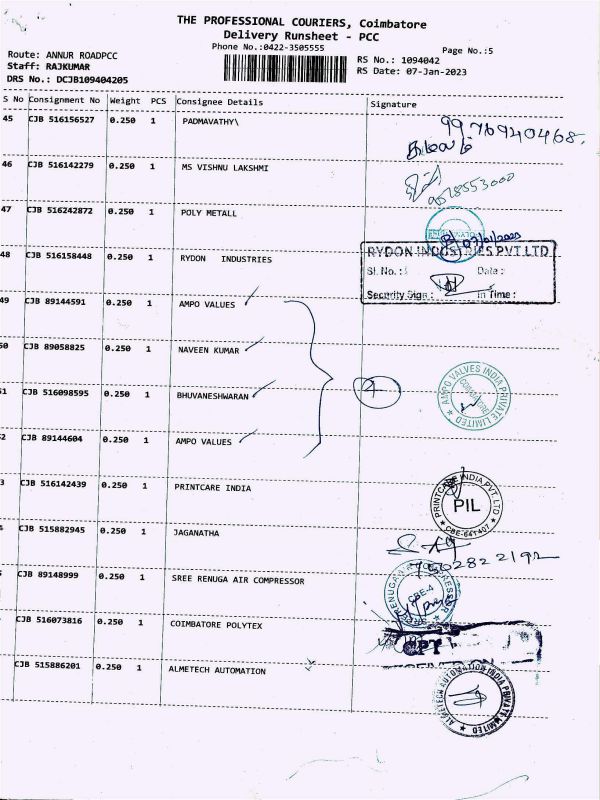 THE PROFESSIONAL COURIERS, Coimbatore
Delivery Runsheet - PCC
Phone No.:0422-3505555
Page No.:5
Route: ANNUR ROADPCC
Staff: RAJKUMAR
DRS No.: DCJB109404205
RS No.: 1094042
RS Date: 07-Jan-2023
S No Consignment No Weight PCS Consignee Details Signature
45 CJB 516156527 0.250 1 PADMAVATHY\ 9976940468.
கமலம்
46 CJB 516142279 0.250 1 MS VISHNU LAKSHMI
47 CJB 516242872 0.250 1 POLY METALL
48 CJB 516158448 0.250 1 RYDON INDUSTRIES
RYDON INDUSTRIES PVT LTD
Sl. No. : Date :
Security Sign : In Time :
49 CJB 89144591 0.250 1 AMPO VALUES
50 CJB 89058825 0.250 1 NAVEEN KUMAR
51 CJB 516098595 0.250 1 BHUVANESHWARAN
AMPO VALVES INDIA PRIVATE LIMITED
COIMBATORE
2 CJB 89144604 0.250 1 AMPO VALUES
3 CJB 516142439 0.250 1 PRINTCARE INDIA
PRINTCARE INDIA PVT LTD
PIL
CBE-641407
CJB 515882945 0.250 1 JAGANATHA
CJB 89148999 0.250 1 SREE RENUGA AIR COMPRESSOR
CBE-4
CJB 516073816 0.250 1 COIMBATORE POLYTEX
CPT
CJB 515886201 0.250 1 ALMETECH AUTOMATION
ALMETECH AUTOMATION INDIA PRIVATE LIMITED